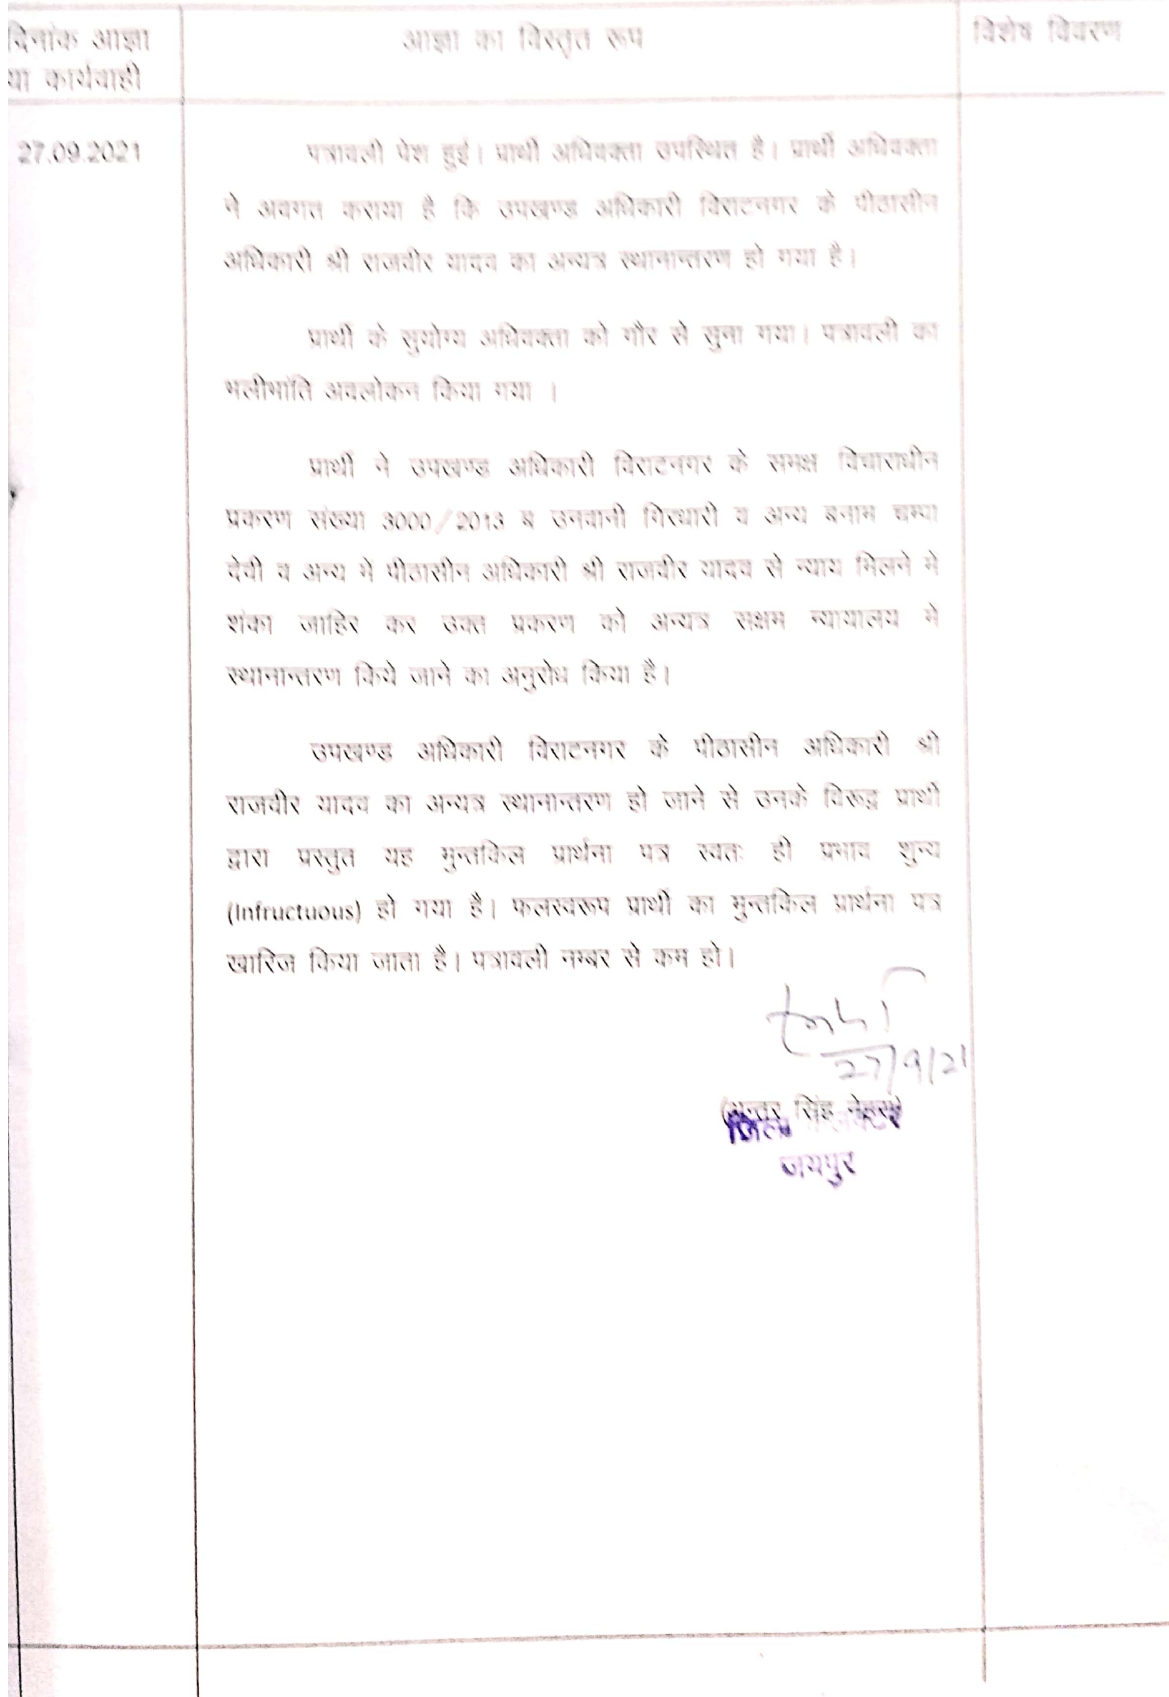 दिनांक आज्ञा
या कार्यवाही
आज्ञा का विस्तृत रूप
विशेष विवरण
27.09.2021
पत्रावली पेश हुई। प्रार्थी अधिवक्ता उपस्थित है। प्रार्थी अधिवक्ता
ने अवगत कराया है कि उपखण्ड अधिकारी विराटनगर के पीठासीन
अधिकारी श्री राजवीर यादव का अन्यत्र स्थानान्तरण हो गया है।
प्रार्थी के सुयोग्य अधिवक्ता को गौर से सुना गया। पत्रावली का
भलीभांति अवलोकन किया गया ।
प्रार्थी ने उपखण्ड अधिकारी विराटनगर के समक्ष विचाराधीन
प्रकरण संख्या 3000/2013 ब उनवानी गिरधारी व अन्य बनाम चम्पा
देवी व अन्य मे पीठासीन अधिकारी श्री राजवीर यादव से न्याय मिलने मे
शंका जाहिर कर उक्त प्रकरण को अन्यत्र सक्षम न्यायालय मे
स्थानान्तरण किये जाने का अनुरोध किया है।
उपखण्ड अधिकारी विराटनगर के पीठासीन अधिकारी श्री
राजवीर यादव का अन्यत्र स्थानान्तरण हो जाने से उनके विरूद्ध प्रार्थी
द्वारा प्रस्तुत यह मुन्तकिल प्रार्थना पत्र स्वतः ही प्रभाव शुन्य
(Infructuous) हो गया है। फलस्वरूप प्रार्थी का मुन्तकिल प्रार्थना पत्र
खारिज किया जाता है। पत्रावली नम्बर से कम हो।
27/9/21
(अन्तर सिंह नेहरा)
जिला कलक्टर
जयपुर